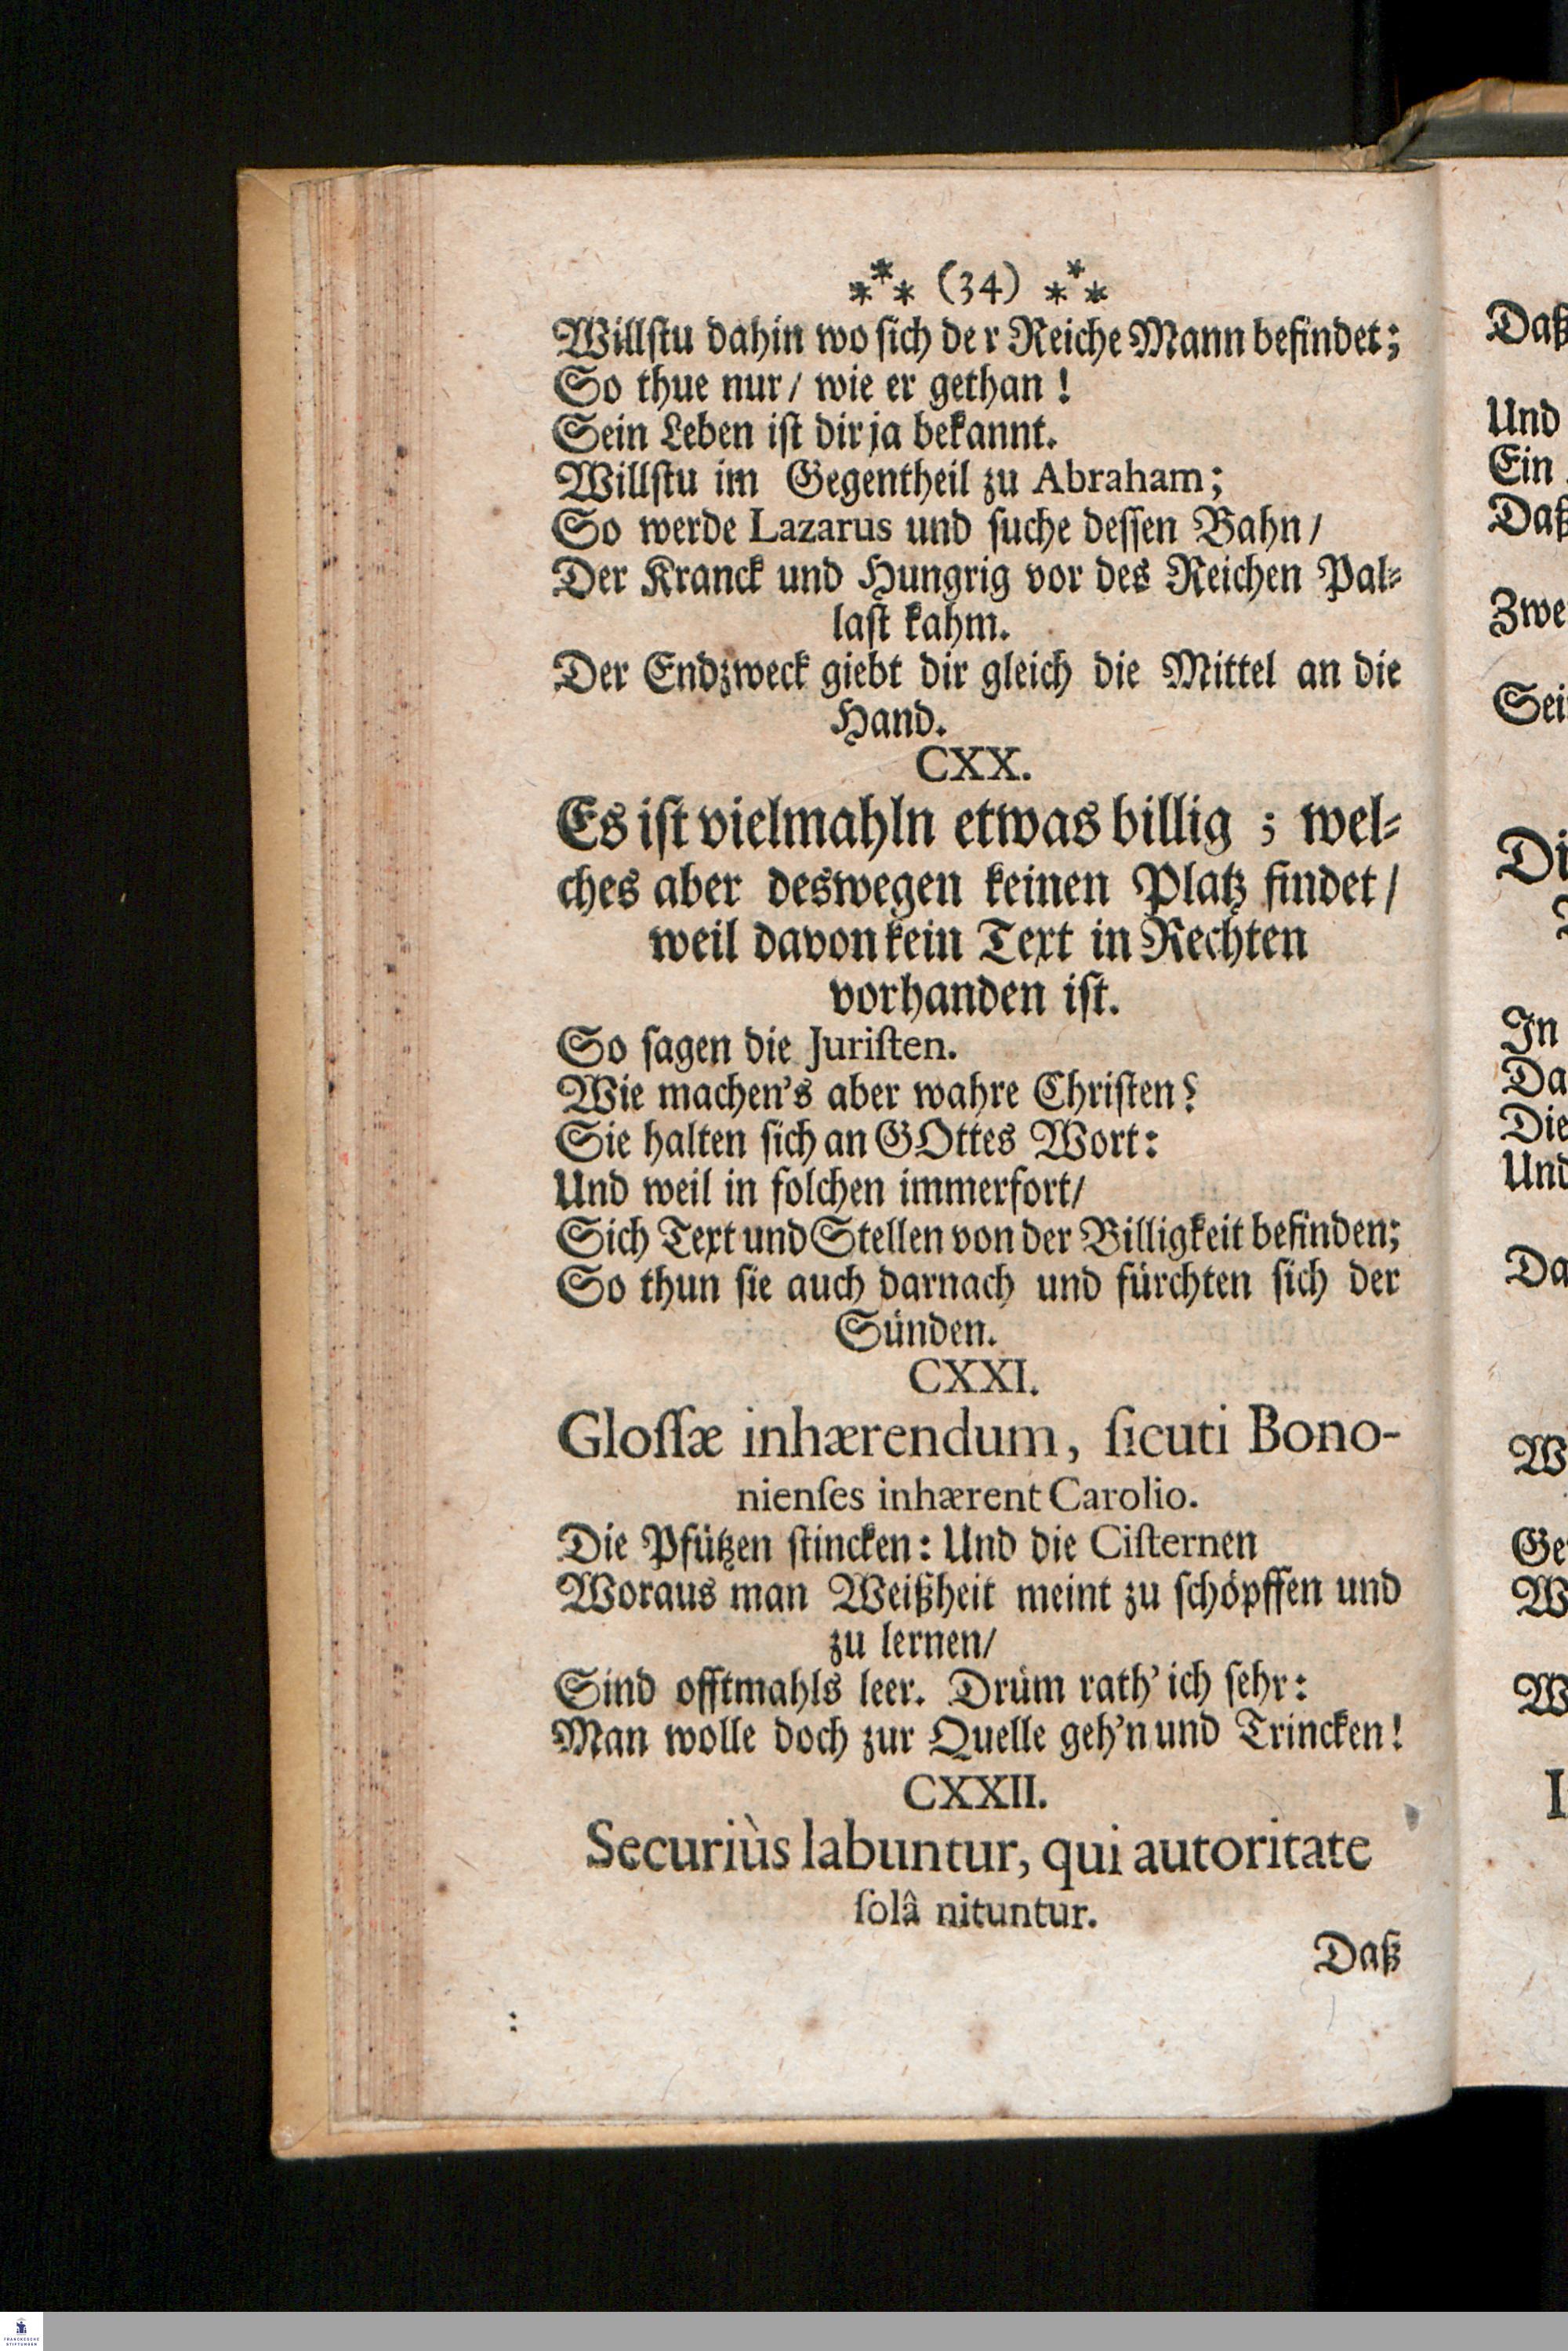 ⁂ (34) ⁂
Willſtu dahin wo ſich de r Reiche Mann befindet;
So thue nur/ wie er gethan !
Sein Leben iſt dir ja bekannt.
Willſtu im Gegentheil zu Abraham;
So werde Lazarus und ſuche deſſen Bahn/
Der Kranck und Hungrig vor des Reichen Pal-
laſt kahm.
Der Endzweck giebt dir gleich die Mittel an die
Hand.
CXX.
Es iſt vielmahln etwas billig ; wel-
ches aber deswegen keinen Platz findet/
weil davon kein Text in Rechten
vorhanden iſt.
So ſagen die Juriſten.
Wie machen's aber wahre Chriſten?
Sie halten ſich an GOttes Wort:
Und weil in ſolchen immerfort/
Sich Text und Stellen von der Billigkeit befinden;
So thun ſie auch darnach und fürchten ſich der
Sünden.
CXXI.
Gloſſæ inhærendum, ſicuti Bono-
nienſes inhærent Carolio.
Die Pfützen ſtincken: Und die Ciſternen
Woraus man Weißheit meint zu ſchöpffen und
zu lernen/
Sind offtmahls leer. Drüm rath' ich ſehr:
Man wolle doch zur Quelle geh'n und Trincken!
CXXII.
Securiùs labuntur, qui autoritate
ſolâ nituntur.
Daß
Daß
Und
Ein
Daß
Zwe
Sei
Di
In
Da
Die
Und
Da
W
Ge
W
W
I
FRANCKESCHE
STIFTUNGEN